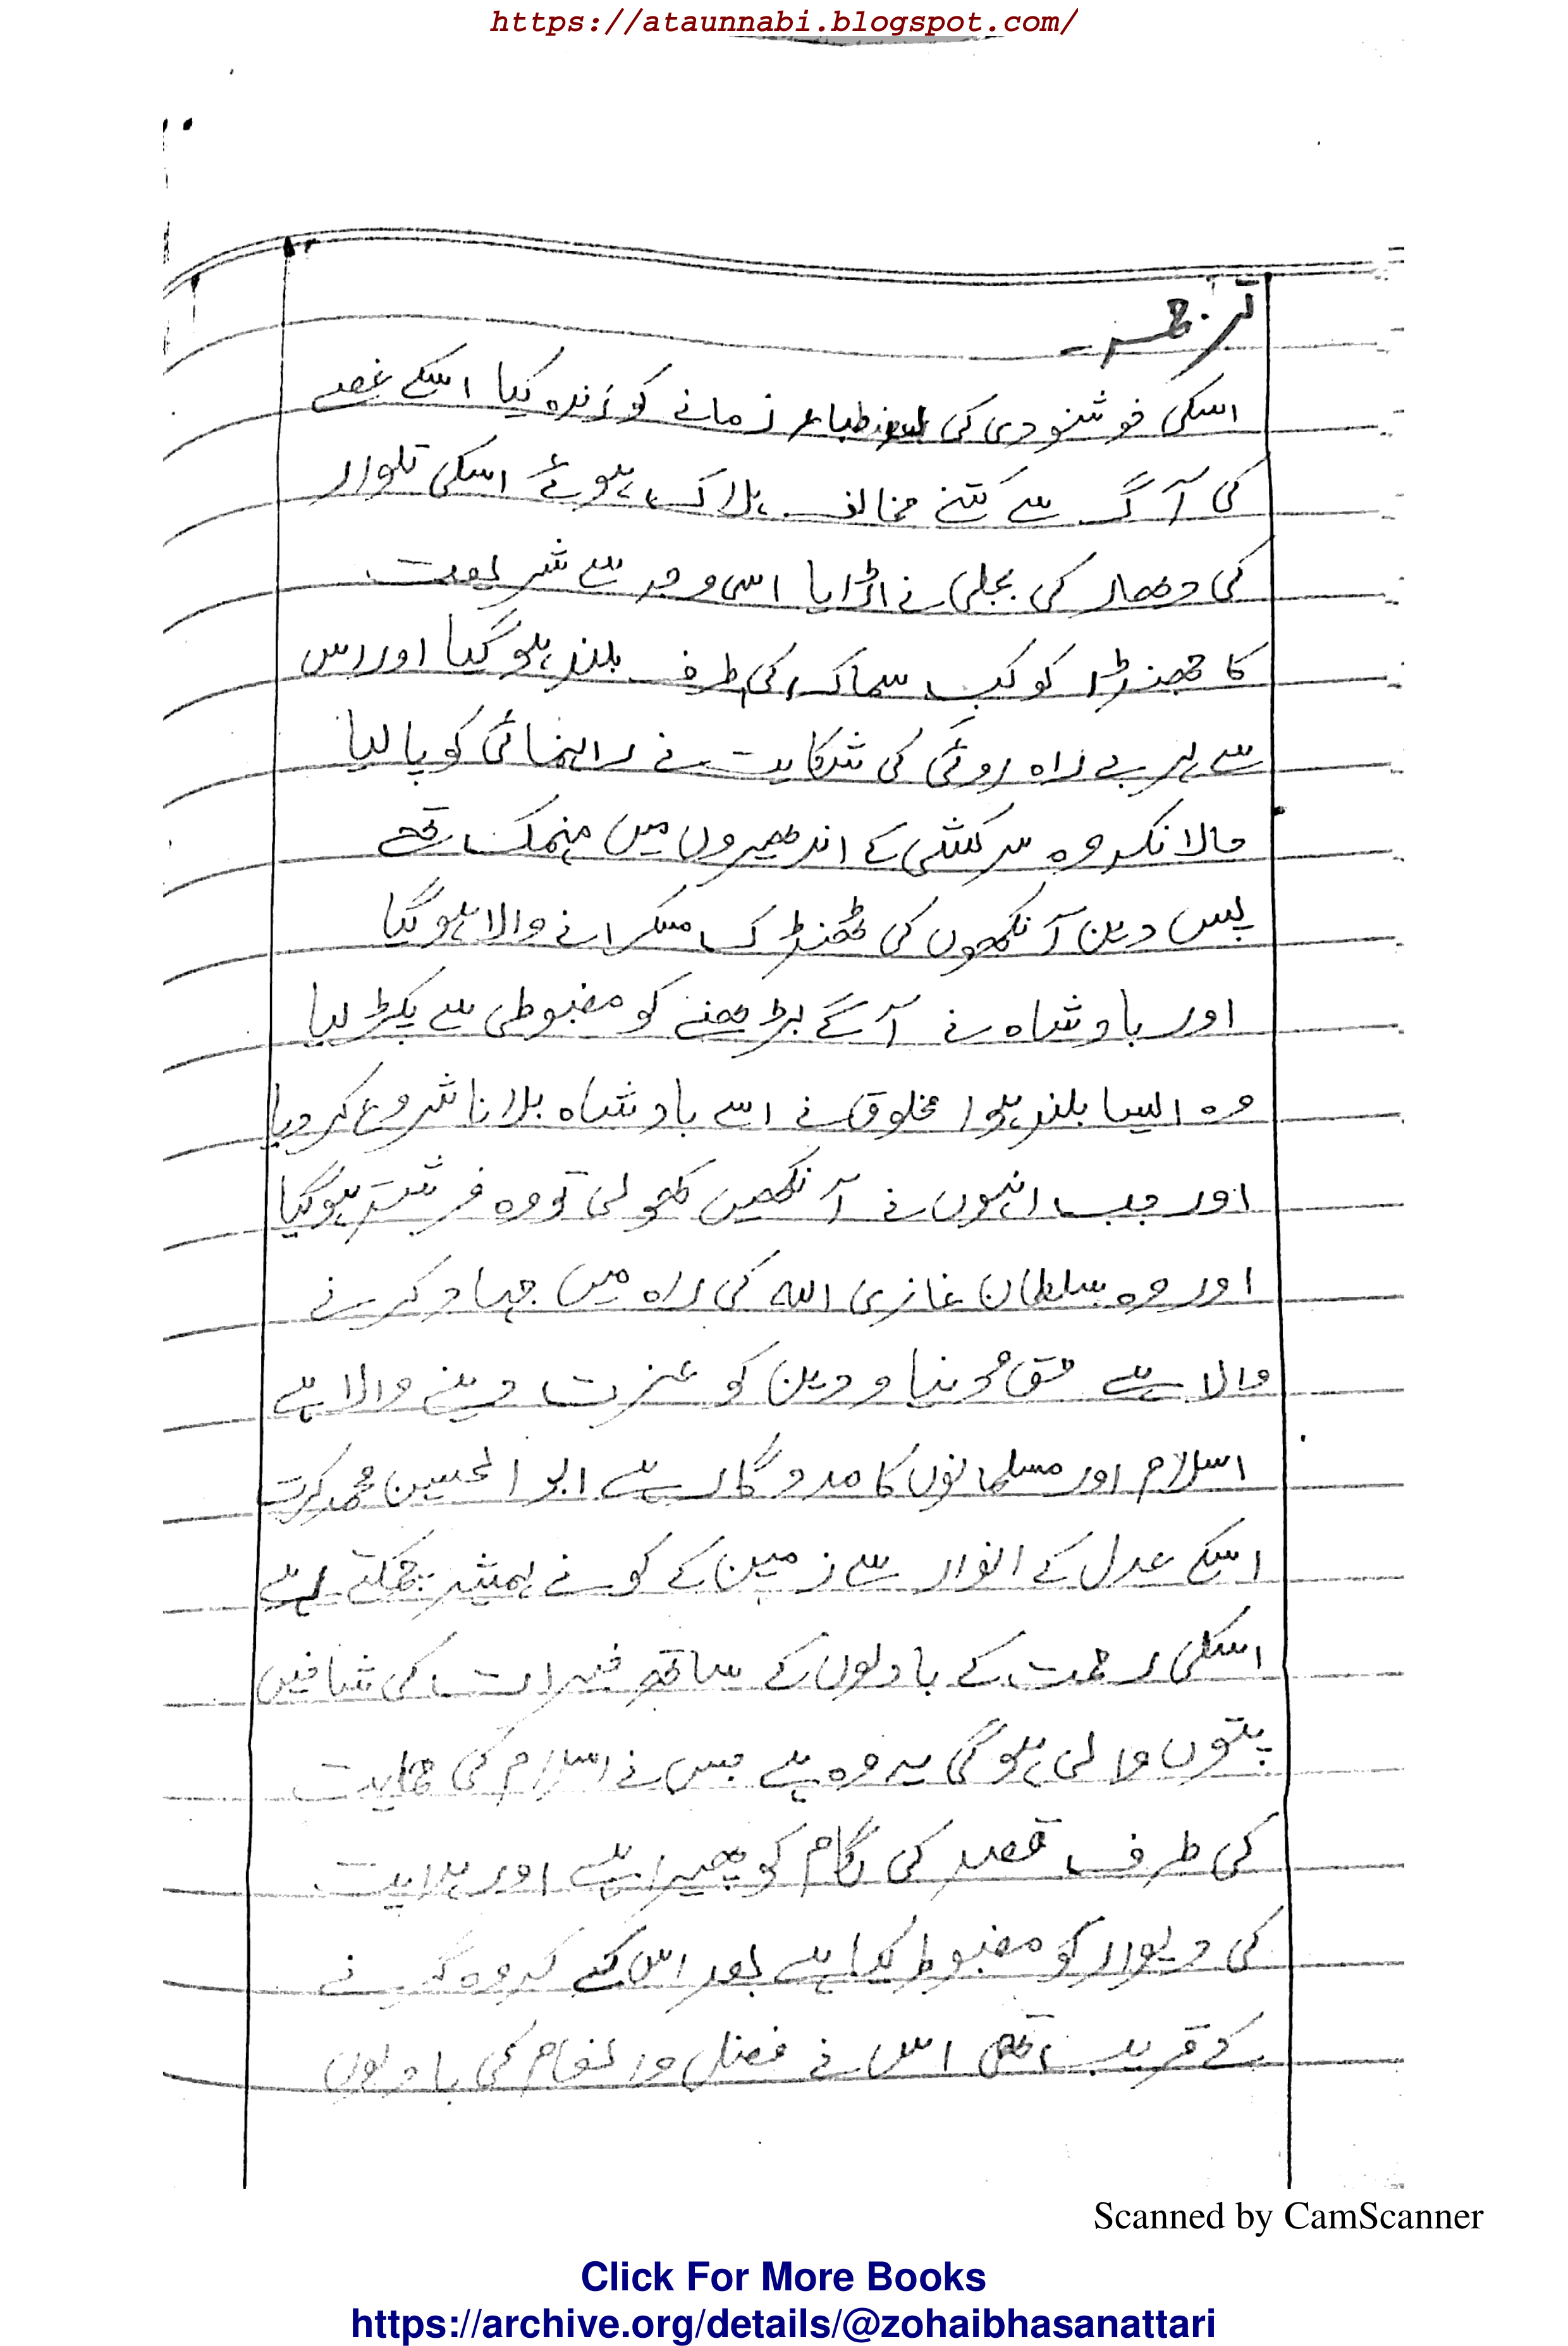 https://ataunnabi.blogspot.com/
ترجمہ۔
اسکی خوشنودی کی زمانے کو زندہ کیا اسکے غصے
کی آگ سے کتنے مخالف ہلاک ہوئے اسکی تلوار
کی دھار کی بجلی نے اڑایا اسی وجہ سے شریعت
کا جھنڈا کوکب سماک کی طرف بلند ہو گیا اور اس
سے ہر بے راہ روئی کی شکایت نے راہنمائی کو پا لیا
حالانکہ وہ سرکشی کے اندھیروں میں منہمک تھے
پس دین آنکھوں کی ٹھنڈک مسکرانے والا ہو گیا
اور بادشاہ نے آگے بڑھنے کو مضبوطی سے پکڑ لیا
وہ ایسا بلند ہوا مخلوق نے اسے بادشاہ بلانا شروع کر دیا
اور جب انہوں نے آنکھیں کھولی تو وہ فرشتہ ہو گیا
اور وہ سلطان غازی اللہ کی راہ میں جہاد کرنے
والا ہے حق دنیا و دین کو عزت دینے والا ہے
اسلام اور مسلمانوں کا مددگار ہے ابو الحسین محمد کرت
اسکے عدل کے انوار سے زمین کے کونے ہمیشہ چمکتے رہے
اسکی رحمت کے بادلوں کے ساتھ خیرات کی شاخیں
پتوں والی ہو گی یہ وہ ہے جس نے اسلام کی حمایت
کی طرف قصد کی لگام کو پھیرا ہے اور ہدایت
کی دیوار کو مضبوط کیا ہے بعد اس کے کہ وہ گرنے
کے قریب تھی اس نے فضل و انعام کی بادلوں
Scanned by CamScanner
Click For More Books
https://archive.org/details/@zohaibhasanattari